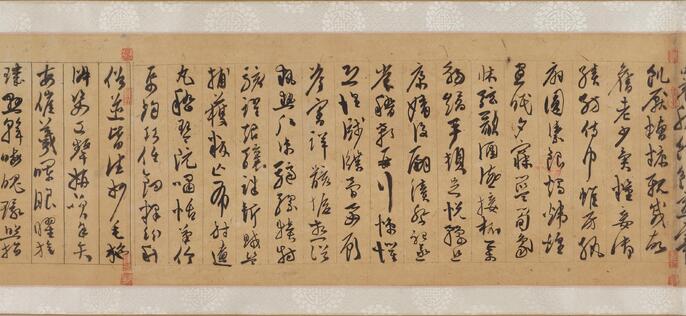 飢厭糟糠親戚故
舊老少異糧妾御
績紡侍巾帷房紈
扇圓潔銀燭煒煌
晝眠夕寐藍筍象
牀弦歌酒讌接杯舉
觴矯手頓足悅豫且
康嫡後嗣續祭祀蒸
嘗稽顙再拜悚懼
恐惶牋牒簡要顧
答審詳骸垢想浴
執熱願涼驢騾犢特
駭躍超驤誅斬賊盜
捕獲叛亡布射遼
丸嵇琴阮嘯恬筆倫
紙鈞巧任釣釋紛利
俗並皆佳妙毛施
淑姿工顰妍笑年矢
每催羲暉朗曜旋
璣懸斡晦魄環照指